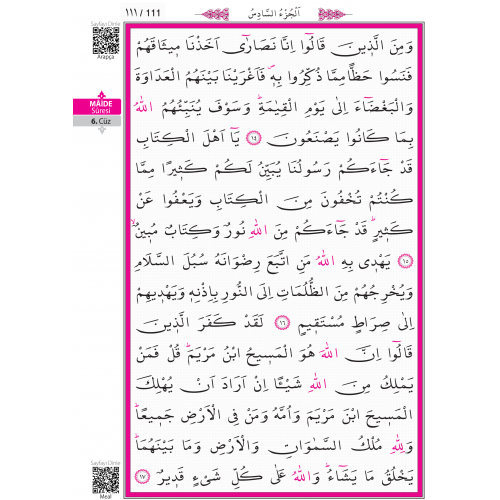 Sayfayı Dinle
Arapça
١١١ / 111
اَلْجُزْءُ السَّادِسُ
MÂİDE
Sûresi
6. Cüz
وَمِنَ الَّذ۪ينَ قَالُٓوا اِنَّا نَصَارٰٓى اَخَذْنَا م۪يثَاقَهُمْ
فَنَسُوا حَظًّا مِمَّا ذُكِّرُوا بِه۪ۖ فَاَغْرَيْنَا بَيْنَهُمُ الْعَدَاوَةَ
وَالْبَغْضَٓاءَ اِلٰى يَوْمِ الْقِيٰمَةِۜ وَسَوْفَ يُنَبِّئُهُمُ اللّٰهُ
بِمَا كَانُوا يَصْنَعُونَ ﴿١٤﴾ يَٓا اَهْلَ الْكِتَابِ
قَدْ جَٓاءَكُمْ رَسُولُنَا يُبَيِّنُ لَكُمْ كَث۪يرًا مِمَّا
كُنْتُمْ تُخْفُونَ مِنَ الْكِتَابِ وَيَعْفُوا عَنْ
كَث۪يرٍۜ قَدْ جَٓاءَكُمْ مِنَ اللّٰهِ نُورٌ وَكِتَابٌ مُب۪ينٌۙ
﴿١٥﴾ يَهْد۪ي بِهِ اللّٰهُ مَنِ اتَّبَعَ رِضْوَانَهُ سُبُلَ السَّلَامِ
وَيُخْرِجُهُمْ مِنَ الظُّلُمَاتِ اِلَى النُّورِ بِاِذْنِه۪ وَيَهْد۪يهِمْ
اِلٰى صِرَاطٍ مُسْتَق۪يمٍ ﴿١٦﴾ لَقَدْ كَفَرَ الَّذ۪ينَ
قَالُٓوا اِنَّ اللّٰهَ هُوَ الْمَس۪يحُ ابْنُ مَرْيَمَۜ قُلْ فَمَنْ
يَمْلِكُ مِنَ اللّٰهِ شَيْـًٔا اِنْ اَرَادَ اَنْ يُهْلِكَ
الْمَس۪يحَ ابْنَ مَرْيَمَ وَاُمَّهُ وَمَنْ فِي الْاَرْضِ جَم۪يعًاۜ
وَلِلّٰهِ مُلْكُ السَّمٰوَاتِ وَالْاَرْضِ وَمَا بَيْنَهُمَاۜ
يَخْلُقُ مَا يَشَٓاءُۜ وَاللّٰهُ عَلٰى كُلِّ شَيْءٍ قَد۪يرٌ ﴿١٧﴾
Sayfayı Dinle
Meal